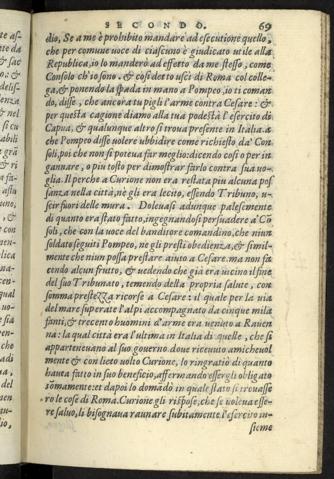 SECONDO. 69
dio, Se a me è prohibito mandare ad esecutione quello,
che per comune uoce di ciascuno è giudicato utile alla
Republica, io lo manderò ad effetto da me stesso, come
Consolo ch'io sono. & così detto uscì di Roma col colle-
ga, & ponendo la spada in mano a Pompeo, io ti coman
do, disse, che ancora tu pigli l'arme contro Cesare: &
per questa cagione diamo alla tua podestà l'esercito di
Capua, & qualunque altro si troua presente in Italia. a
che Pompeo disse uolere ubbidire come richiesto da' Con
soli, poi che non si poteua far meglio: dicendo così o per in
gannare, o piu tosto per dimostrar farlo contra sua uo-
glia. Il perche a Curione non era restata piu alcuna pos
sanza nella città, nè gli era lecito, essendo Tribuno, u-
scir fuori delle mura. Doleuasi adunque palesemente
di quanto era stato fatto, ingegnandosi persuadere a' Cō
soli, che con la uoce del banditore comandino, che niun
soldato seguiti Pompeo, ne gli presti obedienza, & simil-
mente che niun possa prestare aiuto a Cesare. ma non fa
cendo alcun frutto, & uedendo che già era uicino il fine
del suo Tribunato, temendo della propria salute, con
somma prestezza ricorse a Cesare: il quale per la uia
del mare superate l'alpi accompagnato da cinque mila
fanti, & trecento huomini d'arme era uenuto a Rauen
na: la qual città era l'ultima in Italia di quelle, che si
apparteneuano al suo gouerno. doue riceuuto amicheuol
mente & con lieto uolto Curione, lo ringratiò di quanto
hauea fatto in suo beneficio, affermando essergli obligato
sōmamente: et dapoi lo domādò in quale stato si trouasse
ro le cose di Roma. Curione gli rispose, che se uoleua esse-
re saluo, li bisognaua raunare subitamente l'esercito in-
sieme